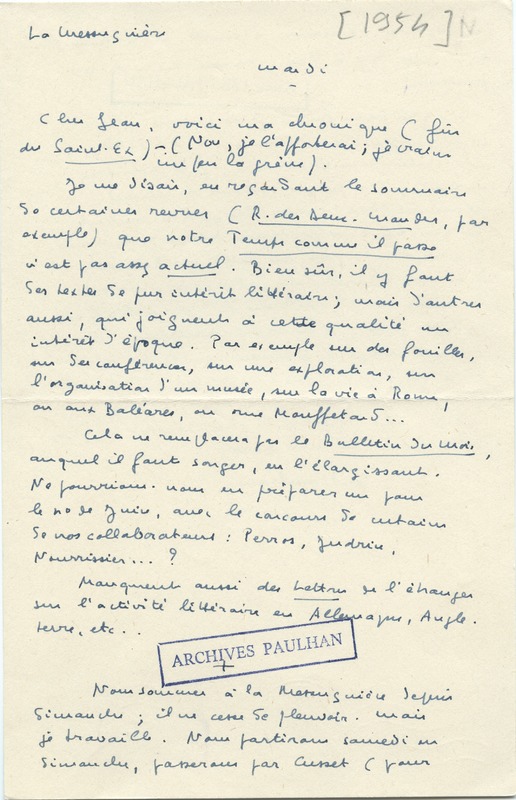 La Messuguière
[1954] N
mardi
Cher Jean, voici ma chronique (fin
du Saint-Ex) – (Non, je l'apporterai ; je crains
un peu la grève).
Je me disais, en regardant le sommaire
de certaines revues (R. des Deux-Mondes, par
exemple) que notre Temps comme il passe
n'est pas assez actuel. Bien sûr, il y faut
des textes de pur intérêt littéraire ; mais d'autres
aussi, qui joignent à cette qualité un
intérêt d'époque. Par exemple sur des fouilles,
sur des conférences, sur une exploration, sur
l'organisation d'un musée, sur la vie à Rome,
ou aux Baléares, ou rue Mouffetard...
Cela ne remplacera pas le Bulletin du mois,
auquel il faut songer, en l'élargissant.
Ne pourrions-nous en préparer un pour
le no de Juin, avec le concours de certains
de nos collaborateurs : Perros, Judrin,
Nourrissier... ?
Manquent aussi des Lettres de l'étranger
sur l'activité littéraire en Allemagne, Angle-
terre, etc..
ARCHIVES PAULHAN
Nous sommes à la Messuguière depuis
dimanche ; il ne cesse de pleuvoir. mais
je travaille. Nous partirons samedi ou
dimanche, passerons par Cusset (pour